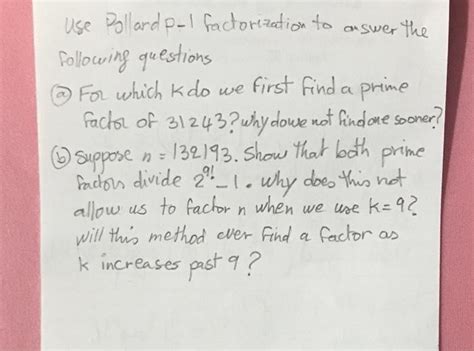 Use Pollard p-1 factorization to answer the
following questions
(a) For which k do we first find a prime
factor of 31243? why do we not find one sooner?
(b) suppose n = 132193. Show that both prime
factors divide 2^9! - 1. why does this not
allow us to factor n when we use k=9?
will this method ever find a factor as
k increases past 9?